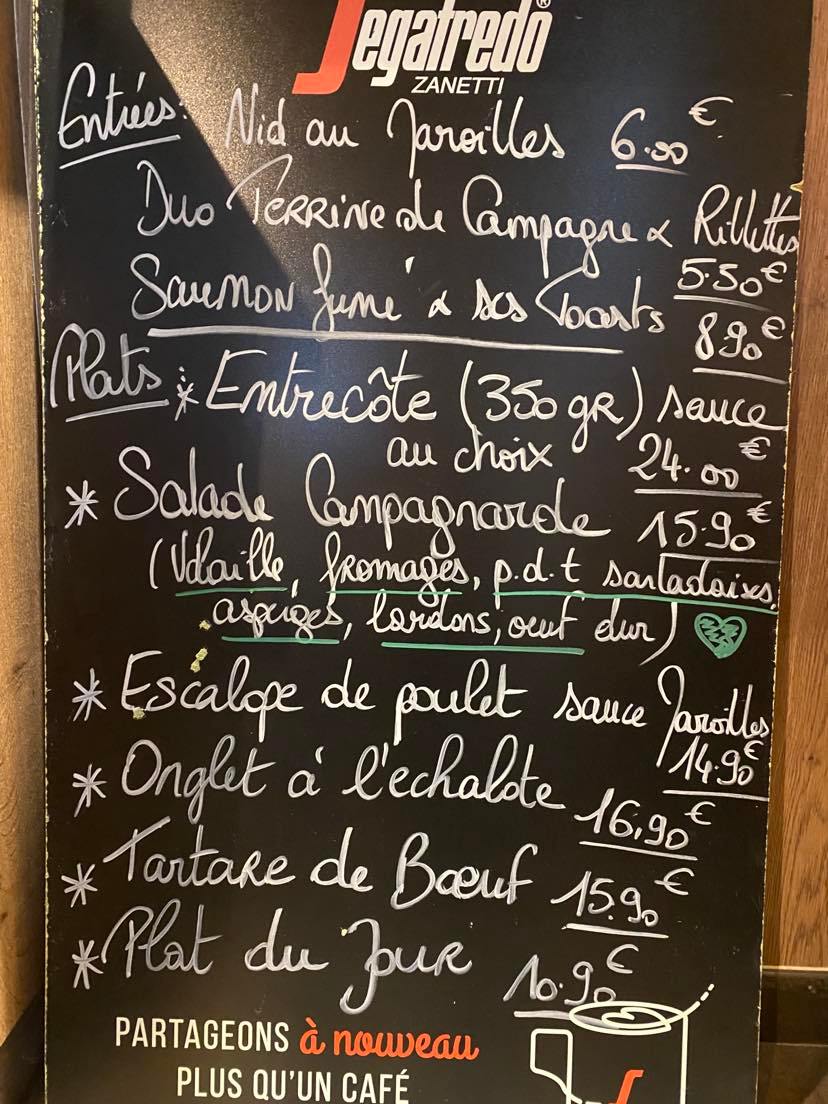 Segafredo®
ZANETTI
Entrées: Nid au Maroilles 6.50€
Duo Terrine de Campagne & Rillettes
5.50€
Saumon fumé & ses Toasts 8.90€
Plats: * Entrecôte (350 gr) sauce
au choix 24.00€
* Salade Campagnarde 15.90€
(Volaille, fromages, p.d.t sarladaises,
asperges, lardons, oeuf dur)
* Escalope de poulet sauce Maroilles
14.90€
* Onglet à l'echalote 16,90€
* Tartare de Bœuf 15.90€
* Plat du Jour 10.90€
PARTAGEONS à nouveau
PLUS QU'UN CAFÉ